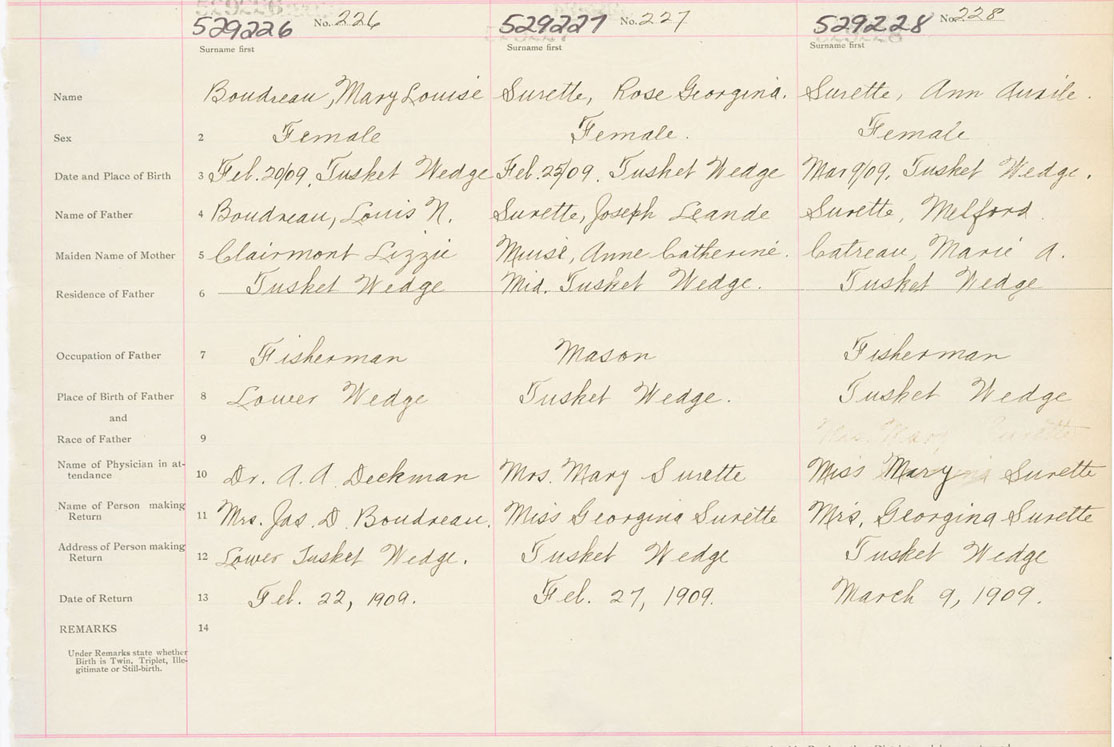 529226 No. 226 529227 No. 227 529228 No. 228
Surname first Surname first Surname first
Name Boudreau, Mary Louise Surette, Rose Georgina. Surette, Ann Auzile.
Sex 2 Female Female. Female
Date and Place of Birth 3 Feb. 20/09, Tusket Wedge Feb. 25/09. Tusket Wedge Mar 9/09, Tusket Wedge.
Name of Father 4 Boudreau, Louis N. Surette, Joseph Leande Surette, Melford.
Maiden Name of Mother 5 Clairmont Lizzie Muise, Anne Catherine. Catreau, Marie A.
Residence of Father 6 Tusket Wedge Mid. Tusket Wedge. Tusket Wedge
Occupation of Father 7 Fisherman Mason Fisherman
Place of Birth of Father 8 Lower Wedge Tusket Wedge. Tusket Wedge
and
Race of Father 9
Name of Physician in at-
tendance 10 Dr. A. A. Deckman Mrs. Mary Surette Miss Mary Surette
Name of Person making
Return 11 Mrs. Jas. D. Boudreau. Miss Georgina Surette Mrs. Georgina Surette
Address of Person making
Return 12 Lower Tusket Wedge. Tusket Wedge Tusket Wedge
Date of Return 13 Feb. 22, 1909. Feb. 27, 1909. March 9, 1909.
REMARKS 14
Under Remarks state whether
Birth is Twin, Triplet, Ille-
gitimate or Still-birth.